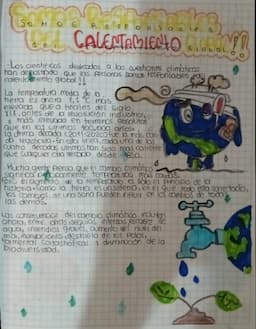 Somos Responsables
del CALENTAMIENTO Global!!
-Los científicos dedicados a las cuestiones climáticas
han demostrado que las personas somos responsables
calentamiento global!!
La temperatura media de la
tierra es ahora 1,1 °C más
elevada que a finales del siglo
antes de la revolución industrial,
y más elevada en términos absolutos
que en los últimos 100,000 años.
la última década (2011-2020) fue la más
registrada
cuatro décadas últimas han sido más caliente
que cualquier otra década desde 1850.
- Mucha gente piensa que el cambio climático
significa principalmente temperaturas más cálidas.
Pero el aumento de la temperatura es sólo el principio de la
historia. Como la tierra es un sistema, en el que todo está conectado,
los cambios de una zona pueden influir en los cambios de todas
las demás.
Las consecuencias del cambio climático incluyen
ahora, entre otras, sequías intensas, escasez de
agua, incendios graves, aumento del nivel del
mar, inundaciones, deshielo de los polos,
tormentas catastróficas y disminución de la
biodiversidad.